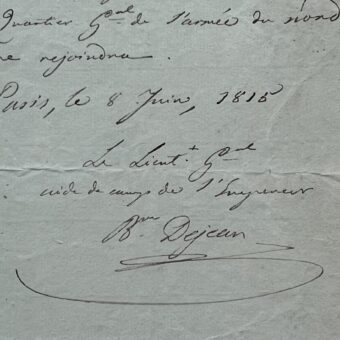 Quartier Gnal de l'armée du nord
me rejoindra.
Paris, le 8 Juin, 1815
Le Lieutt Gnal
aide de camp de l'Empereur
Bon Dejean